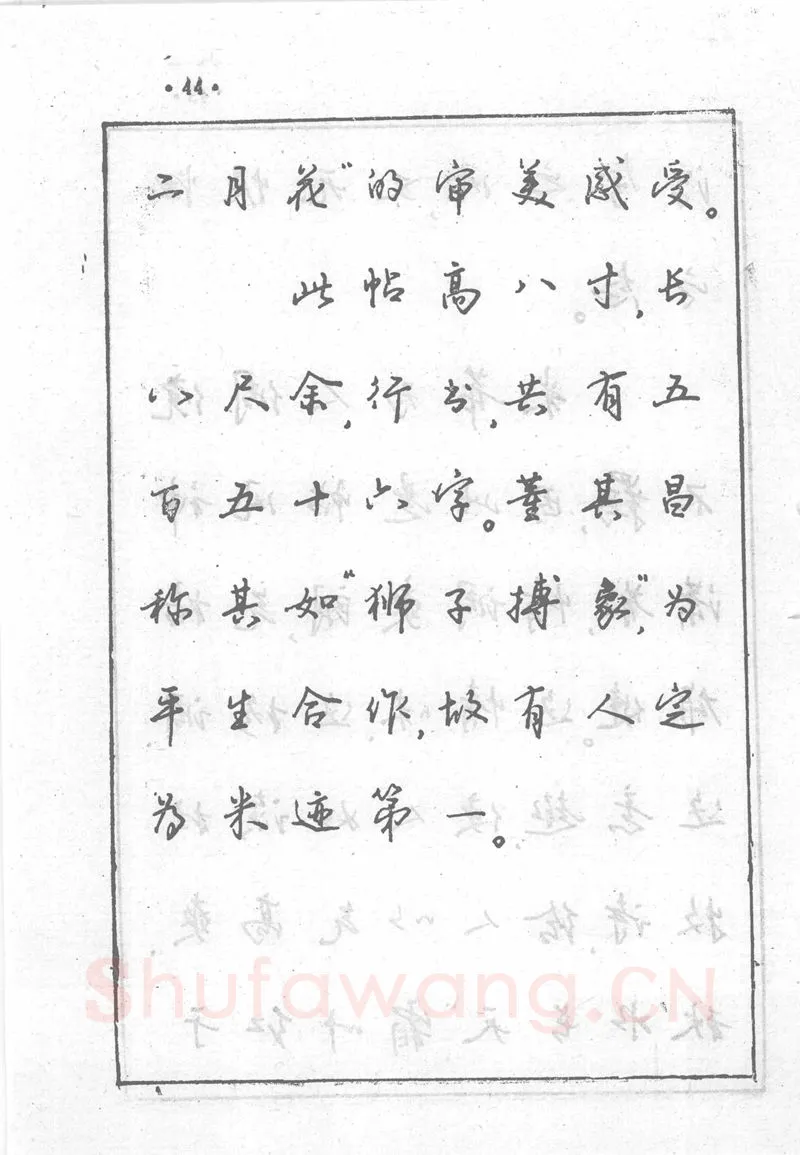 ·44·
二月花”的审美感受。
此帖高八寸,长
八尺余,行书,共有五
百五十六字。董其昌
称其如“狮子搏象”,为
平生合作,故有人定
为米迹第一。
Shufawang.CN